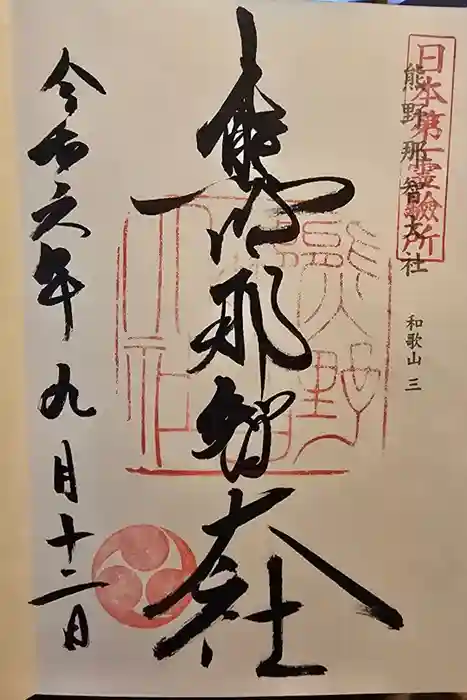 日本第一霊験所
熊野那智大社
和歌山 三
熊野那智大社
令和六年九月十二日
熊野那智大社